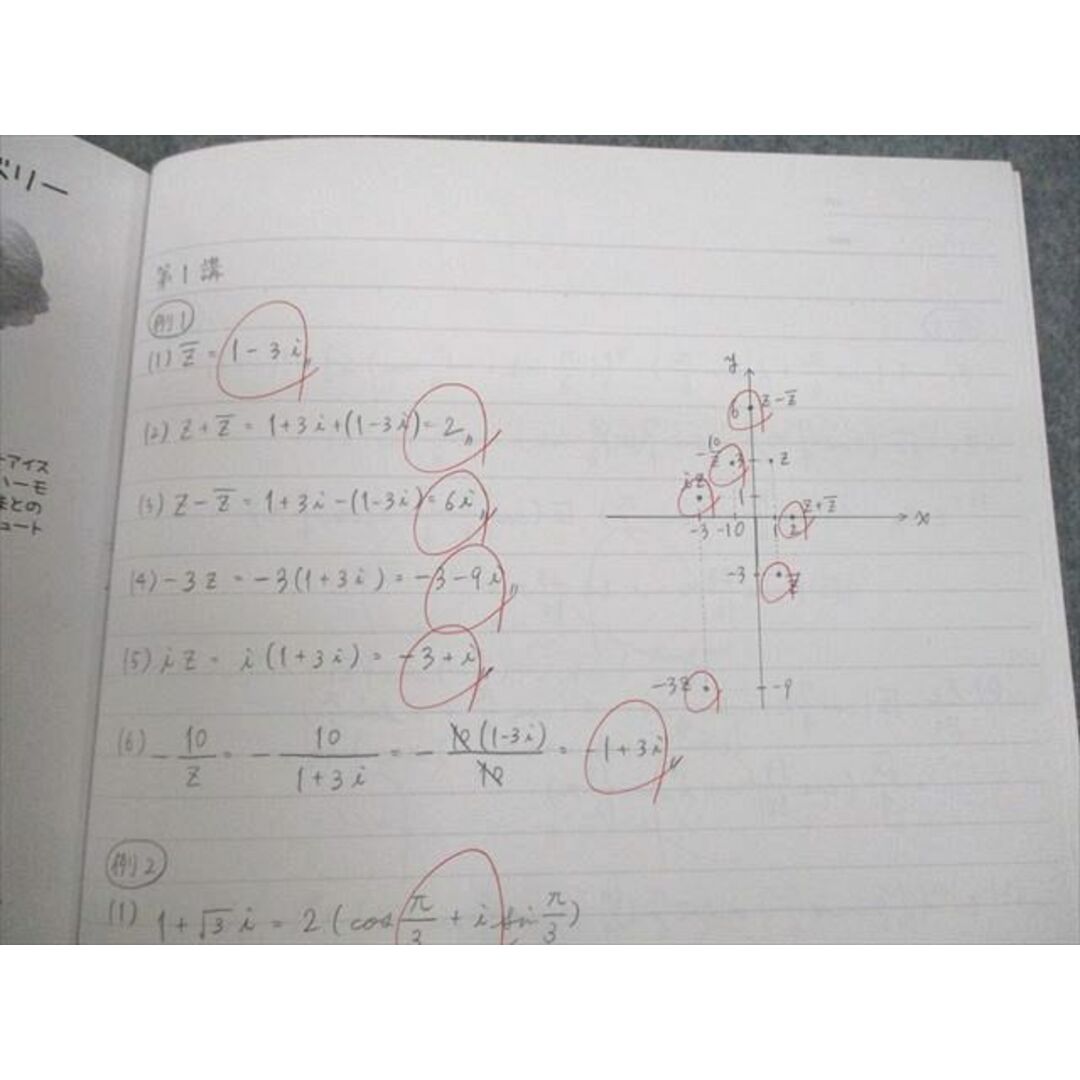 ベリー
アイス
ハーモ
まとの
ュート
第1講
例1
(1) z̄ = 1-3i
(2) z+z̄ = 1+3i+(1-3i) = 2
(3) z-z̄ = 1+3i-(1-3i) = 6i
(4) -3z = -3(1+3i) = -3-9i
(5) iz = i(1+3i) = -3+i
(6) -10/z = -10/(1+3i) = -10(1-3i)/10 = -1+3i
y
6 z-z̄
-10/z 3 z
iz 1
z+z̄
-3 -1 0 1 2 x
-3 z̄
-3z -9
例2
(1) 1+√3i = 2(cos π/3 + i sin π/3)